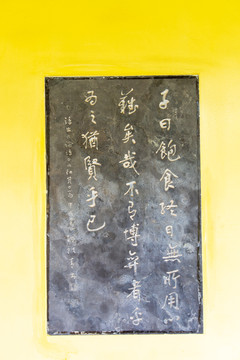 子曰飽食終日無所用心
難矣哉不有博弈者乎
為之猶賢乎已